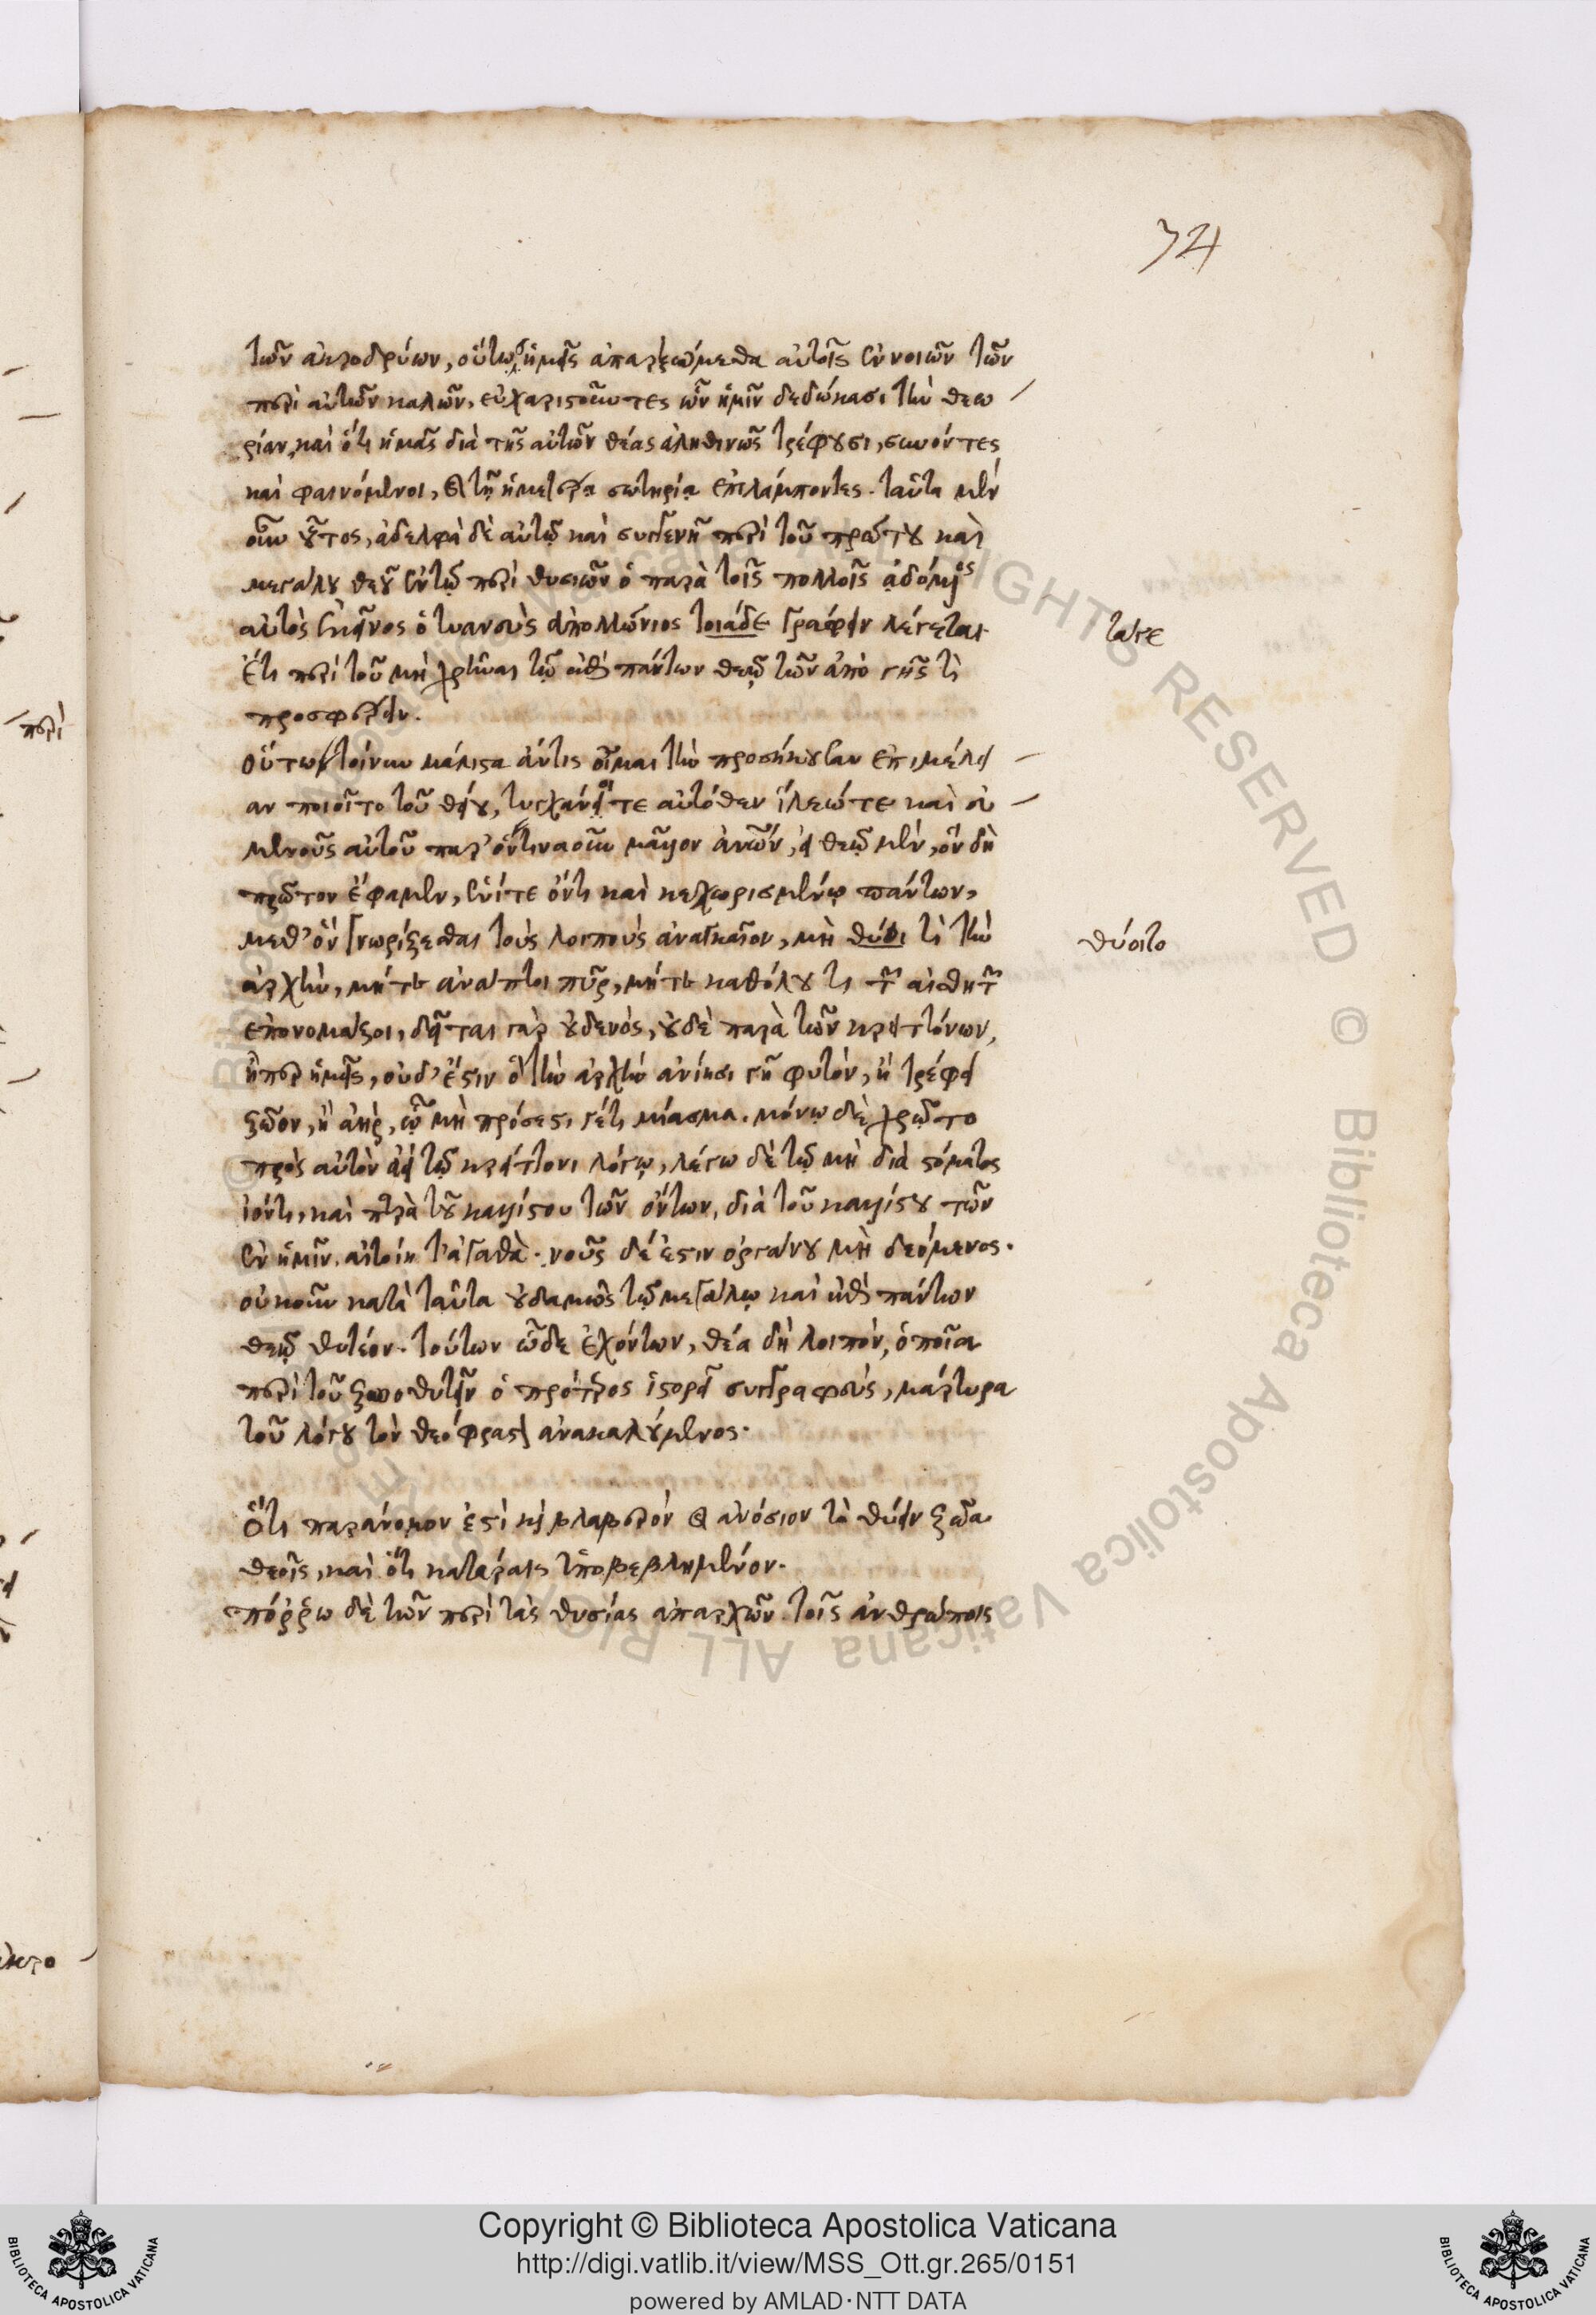 74
τῶν ἀκροδρύων, οὕτως ἡμεῖς ἀπαρξώμεθα αὐτοῖς ἐννοιῶν τῶν
περὶ αὐτῶν καλῶν, εὐχαριστοῦντες ὧν ἡμῖν δεδώκασι τὴν θεω
ρίαν, καὶ ὅτι ἡμᾶς διὰ τῆς αὐτῶν θέας ἀληθινῶς τρέφουσι, συνόντες
καὶ φαινόμενοι, καὶ τῇ ἡμετέρᾳ σωτηρίᾳ ἐπιλάμποντες. ταῦτα μὲν
οὖν οὗτος, ἀδελφὰ δὲ αὐτῷ καὶ συγγενῆ περὶ τοῦ πρώτου καὶ
μεγάλου θεοῦ ἐν τῷ περὶ θυσιῶν ὁ παρὰ τοῖς πολλοῖς ᾀδόμενος
αὐτὸς ἐκεῖνος ὁ τυανεὺς ἀπολλώνιος τοιάδε γράφειν λέγεται
ἔτι περὶ τοῦ μὴ χρῆναι τῷ ἐπὶ πάντων θεῷ τῶν ἀπὸ γῆς τὶ
προσφέρειν.
οὕτως τοίνυν μάλιστα ἄν τις οἶμαι τὴν προσήκουσαν ἐπιμέλει
αν ποιοῖτο τοῦ θείου, τυγχάνοι τε αὐτόθεν ἵλεώ τε καὶ εὐ
μενοῦς αὐτοῦ παρ' ὅντινα οὖν μᾶλλον ἀνθρώπων, εἰ θεῷ μὲν, ὃν δὴ
πρῶτον ἔφαμεν, ἑνί τε ὄντι καὶ κεχωρισμένῳ πάντων,
μεθ' ὃν γνωρίζεσθαι τοὺς λοιποὺς ἀναγκαῖον, μὴ θύοι τὶ τὴν
ἀρχὴν, μήτε ἀνάπτοι πῦρ, μήτε καθόλου τι τῶν αἰσθητῶν
ἐπονομάζοι, δεῖται γὰρ οὐδενός, οὐδὲ παρὰ τῶν κρειττόνων,
ἤπερ ἡμεῖς, οὐδ' ἔστιν ὃ τὴν ἀρχὴν ἀνίησι γῆ φυτόν, ἢ τρέφει
ζῶον, ἢ ἀήρ, ᾧ μὴ πρόσεστι γέ τι μίασμα. μόνῳ δὲ χρῷτο
πρὸς αὐτὸν ἀεὶ τῷ κρείττονι λόγῳ, λέγω δὲ τῷ μὴ διὰ στόματος
ἰόντι, καὶ παρὰ τοῦ καλλίστου τῶν ὄντων, διὰ τοῦ καλλίστου τῶν
ἐν ἡμῖν. αἰτοίη τ' ἀγαθὰ. νοῦς δέ ἐστιν ὀργάνου μὴ δεόμενος.
οὐκοῦν κατὰ ταῦτα οὐδαμῶς τῷ μεγάλῳ καὶ ἐπὶ πάντων
θεῷ θυτέον. τούτων ὧδε ἐχόντων, θέα δὴ λοιπόν, ὁποῖα
περὶ τοῦ ζωοθυτεῖν ὁ πρότερος ἱστορεῖ συγγραφεὺς, μάρτυρα
τοῦ λόγου τὸν θεόφραστον ἀνακαλούμενος.
Ὅτι παράνομον ἐστὶ καὶ βλαβερόν καὶ ἀνόσιον τὸ θύειν ζῶα
θεοῖς, καὶ ὅτι κατάραις ὑποβεβλημένον.
πόῤῥω δὲ τῶν περὶ τὰς θυσίας ἀπαρχῶν τοῖς ἀνθρώποις
τάγε
θύοιτο
περὶ
Copyright © Biblioteca Apostolica Vaticana
http://digi.vatlib.it/view/MSS_Ott.gr.265/0151
powered by AMLAD·NTT DATA